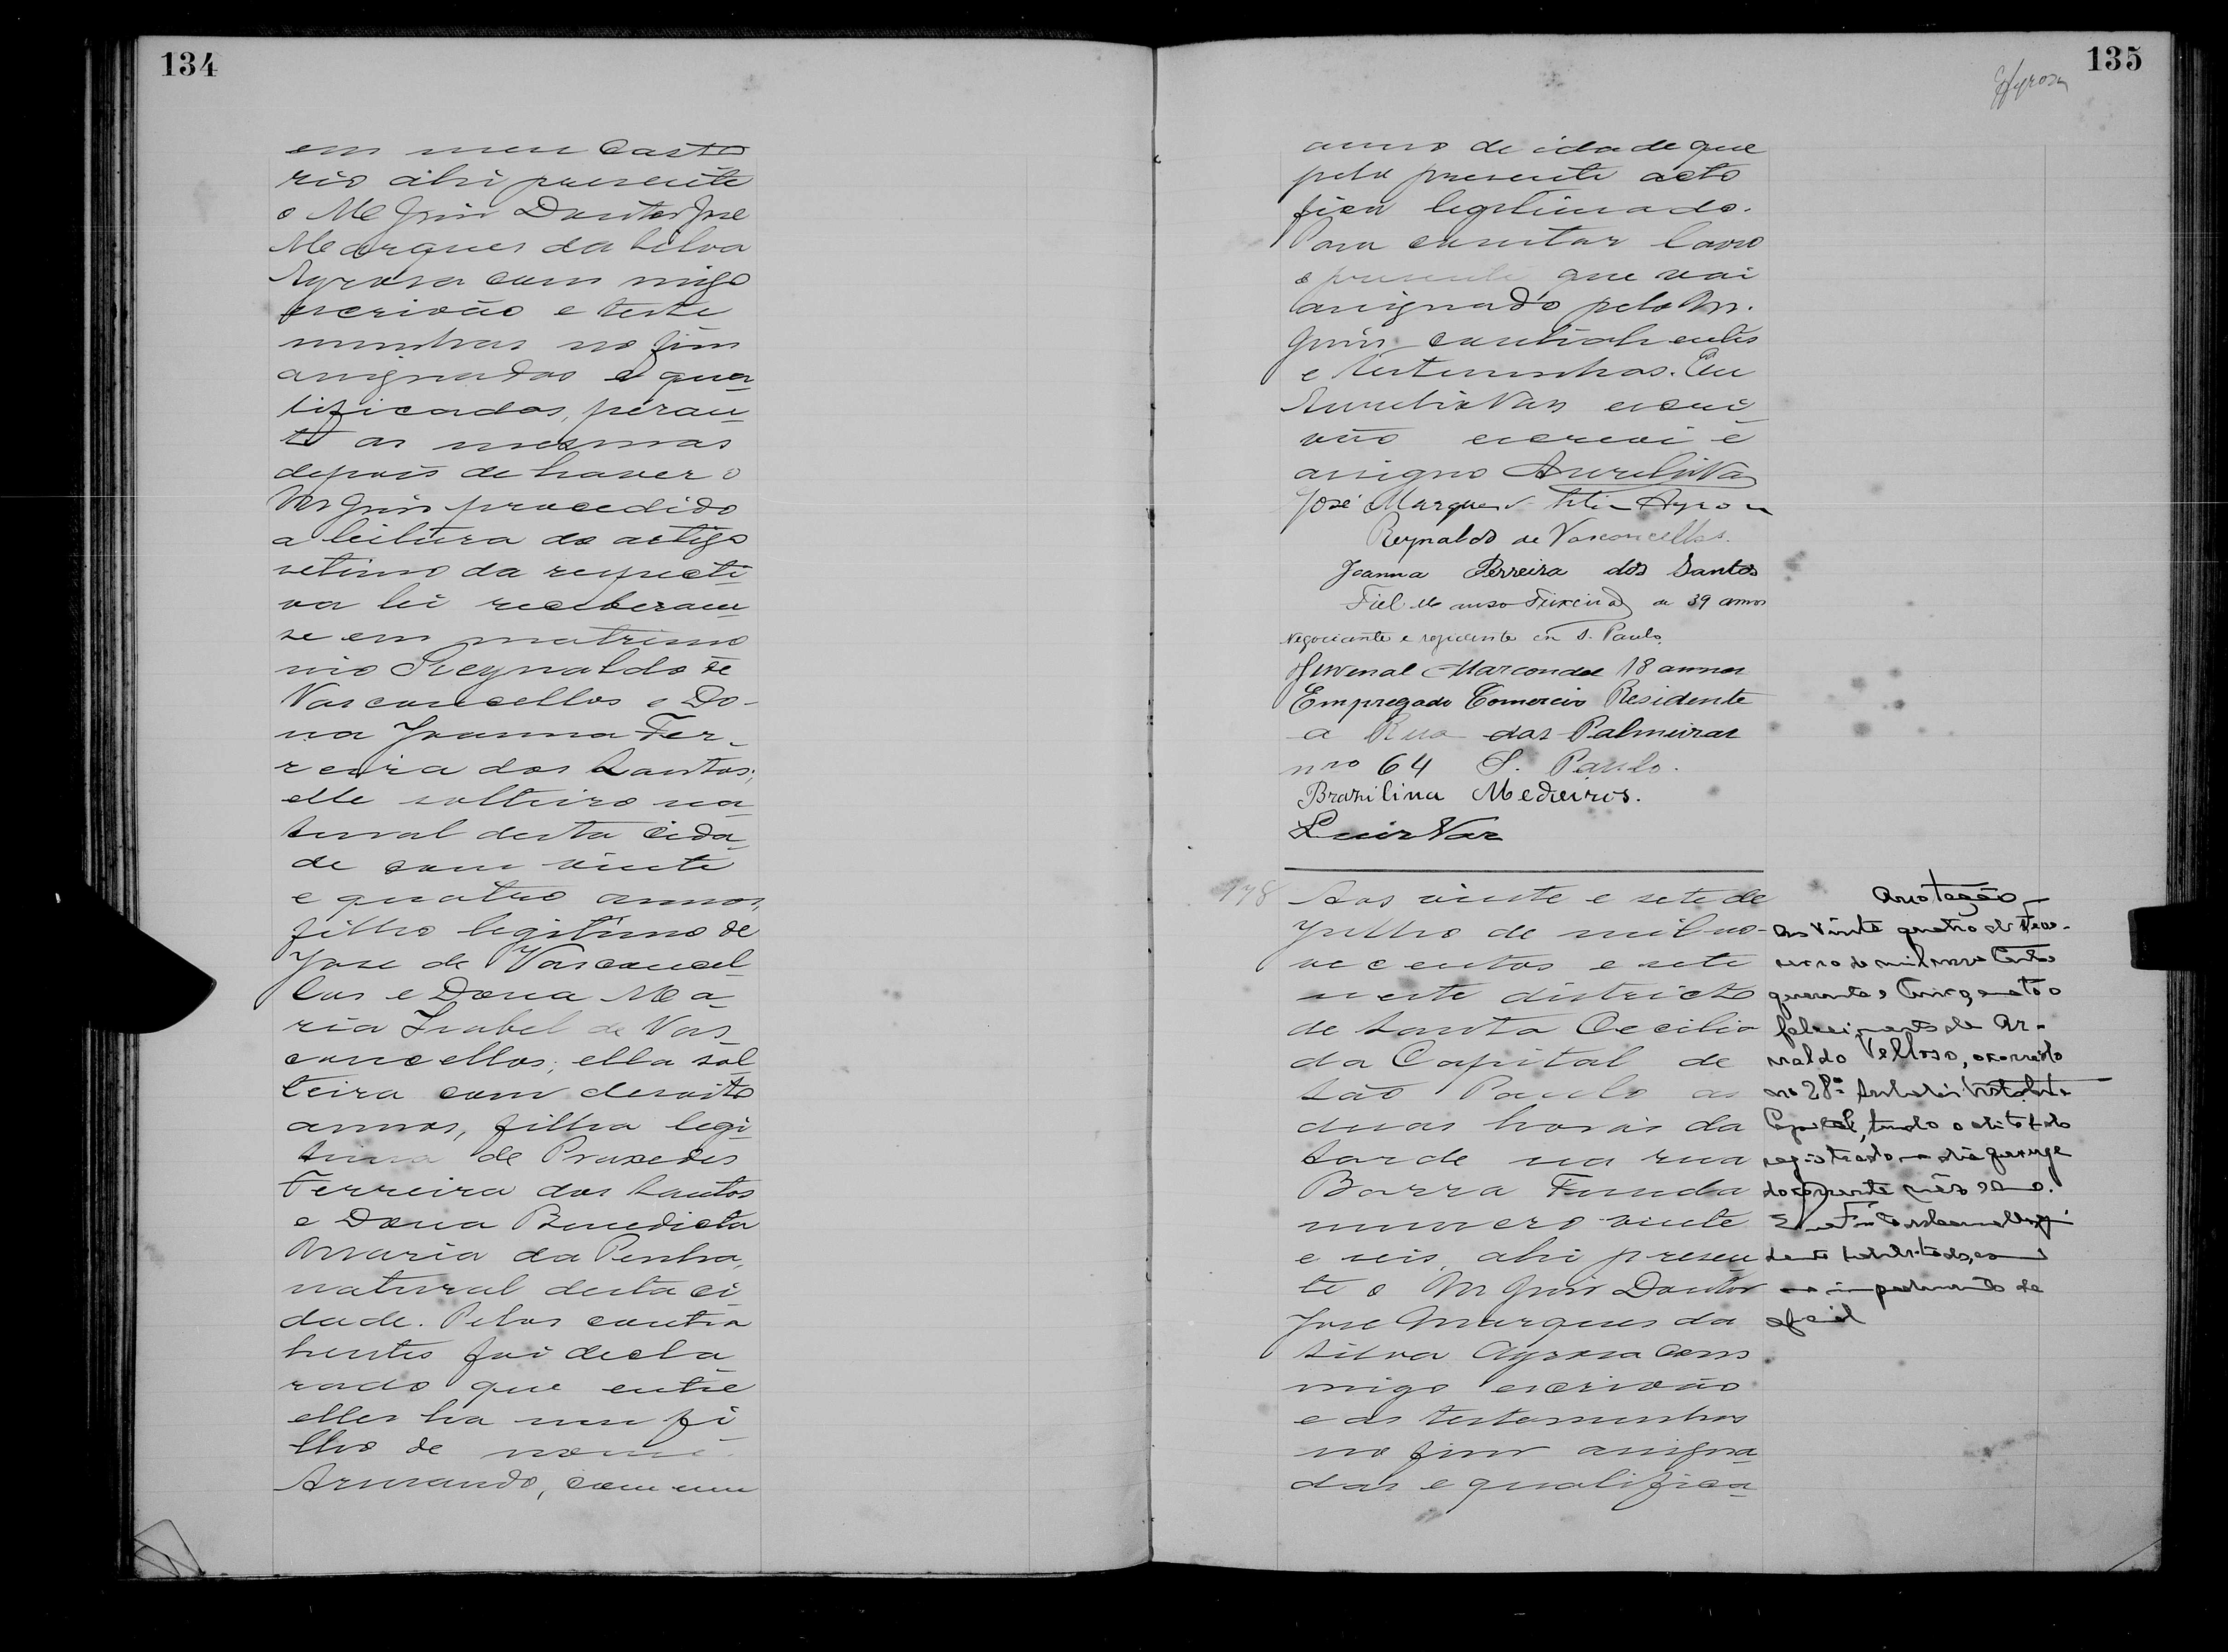 134
em meu Carto
rio ahi presente
o M Juiz Doutor Jose
Marques da Silva
Ayrosa commigo
escrivão e teste
munhas no fim
assignadas e qua
lificadas, peran
te as mesmas
depois de haver o
M Juiz procedido
a leitura do artigo
setimo da respecti
va lei receberam
se em matrimo
nio Reynaldo de
Vasconcellos e Do-
na Joanna Fer-
reira dos Santos;
elle solteiro na
tural desta cida
de com vinte
e quatro annos,
filho legitimo de
Jose de Vasconcel
los e Dona Ma
ria Izabel de Vas
concellos; ella sol
teira com desoito
annos, filha legi
tima de Praxedes
Ferreira dos Santos
e Dona Benedicta
Maria da Penha,
natural desta ci
dade. Pelos contra
hentes foi decla
rado que entre
elles ha um fi
lho de nome
Armando, com um
135
Ayrosa
anno de idade que
pelo presente acto
fica legitimado.
Para constar lavro
o presente que vai
assignado pelo M.
Juiz contrahentes
e testemunhas. Eu
Aurelio Vaz escri
vão escrevi e
assigno Aurelio Vaz
José Marques Silva Ayrosa
Reynaldo de Vasconcellos.
Joanna Ferreira dos Santos
Fiel Teixeira de 39 annos
Negociante e residente en S. Paulo.
Juvenal Marcondes 18 annos
Empregado Comercio Residente
a Rua das Palmeiras
nro 64 S. Paulo.
Brazilina Medeiros.
Luiz Vaz
178
Aos vinte e sete de
Julho de mil no-
vecentos e sete
neste districto
de Santa Cecilia
da Capital de
São Paulo as
duas horas da
tarde na rua
Barra Funda
numero vinte
e seis, ahi presen
te o M Juiz Doutor
Jose Marques da
Silva Ayrosa com
migo escrivão
e as testemunhas
no fim assigna
das e qualifica
Anotação
Aos vinte quatro de Feve-
reiro de mil nove centos
quarenta e cinco anoto o
falecimento de Ar-
naldo Velloso, ocorrido
no 28º Subdistrito desta
Capital, tendo o obito sido
registrado no dia quinze
do corrente mês e ano.
no impedimento do
oficial